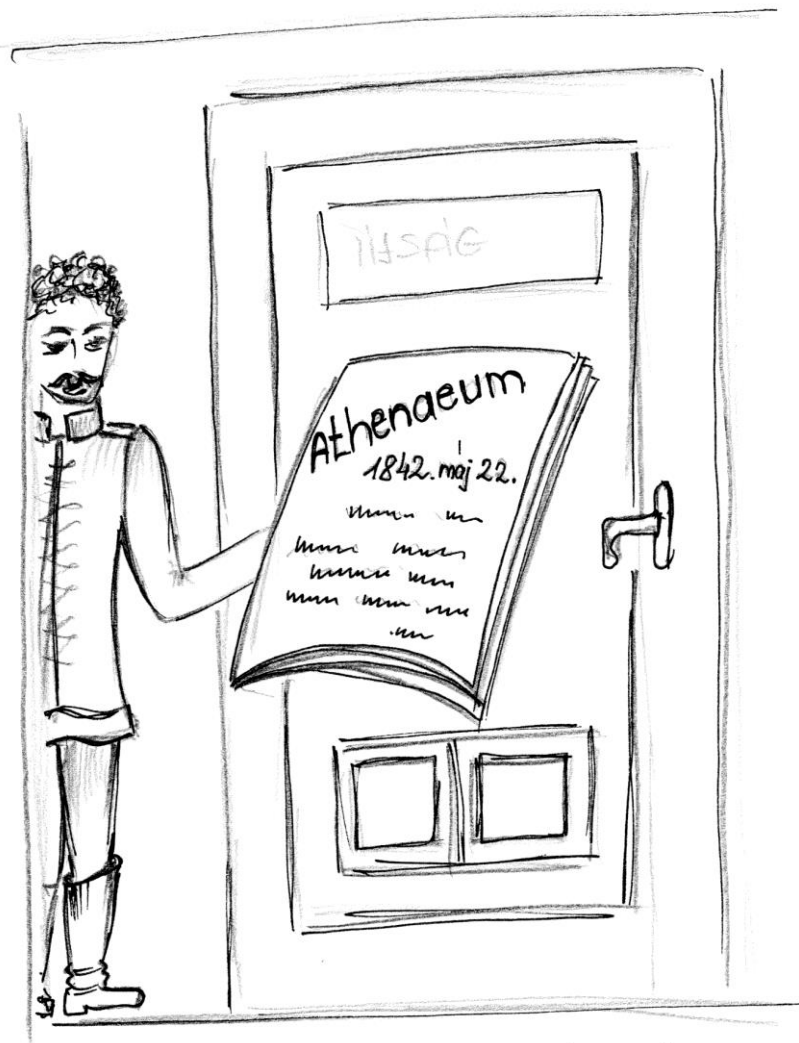 Athenaeum
1842. máj 22.